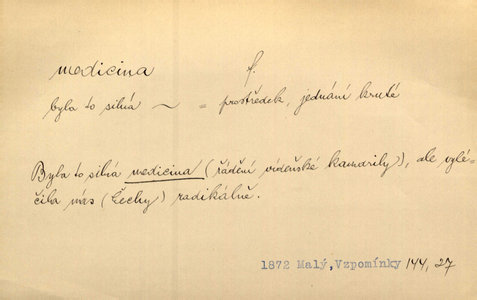 medicina f.
byla to silná ~ = prostředek, jednání kruté
Byla to silná medicina (řádění vídeňské kamarily), ale vylé-
čila nás (Čechy) radikálně.
1872 Malý, Vzpomínky 144, 27